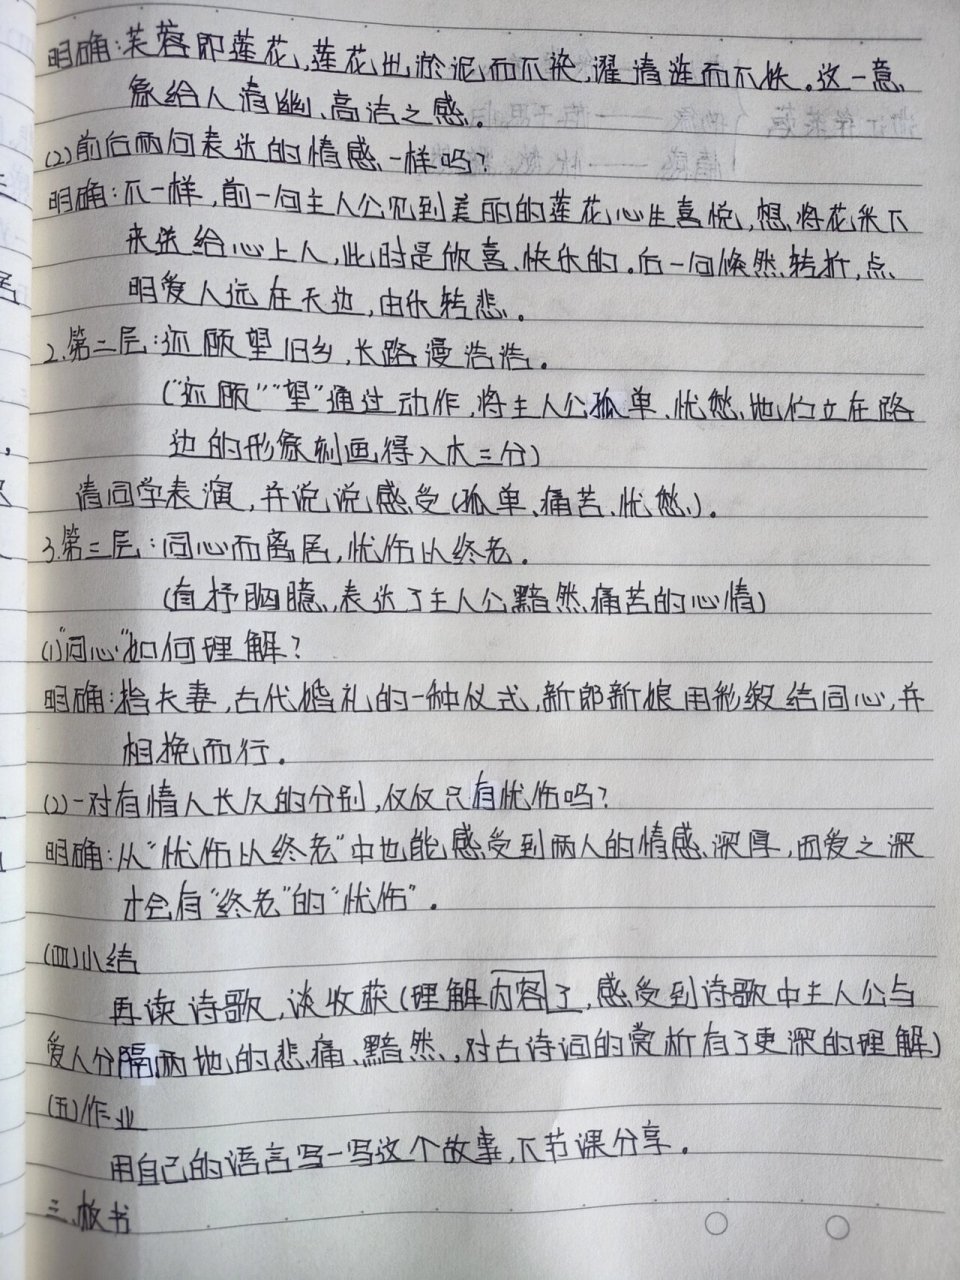 明确:芙蓉即莲花,莲花出淤泥而不染,濯清涟而不妖。这一意
象给人清幽、高洁之感。
(2)前后两句表达的情感一样吗?
明确:不一样,前一句主人公见到美丽的莲花心生喜悦,想将花采下
来送给心上人,此时是欣喜、快乐的。后一句陡然转折,点
明爱人远在天边,由乐转悲。
2.第二层:还顾望旧乡,长路漫浩浩。
("还顾""望"通过动作,将主人公孤单、忧愁地伫立在路
边的形象刻画得入木三分)
请同学表演,并说说感受(孤单、痛苦、忧愁)。
3.第三层:同心而离居,忧伤以终老。
(直抒胸臆,表达了主人公黯然痛苦的心情)
(1)"同心"如何理解?
明确:指夫妻,古代婚礼的一种仪式,新郎新娘用彩缎结同心,并
相挽而行。
(2)一对有情人长久的分别,仅仅只有忧伤吗?
明确:从"忧伤以终老"中也能感受到两人的情感深厚,因爱之深
才会有"终老"的"忧伤"。
(四)小结
再读诗歌,谈收获(理解内容了,感受到诗歌中主人公与
爱人分隔两地的悲痛、黯然,对古诗词的赏析有了更深的理解)
(五)作业
用自己的语言写一写这个故事,下节课分享。
三、板书